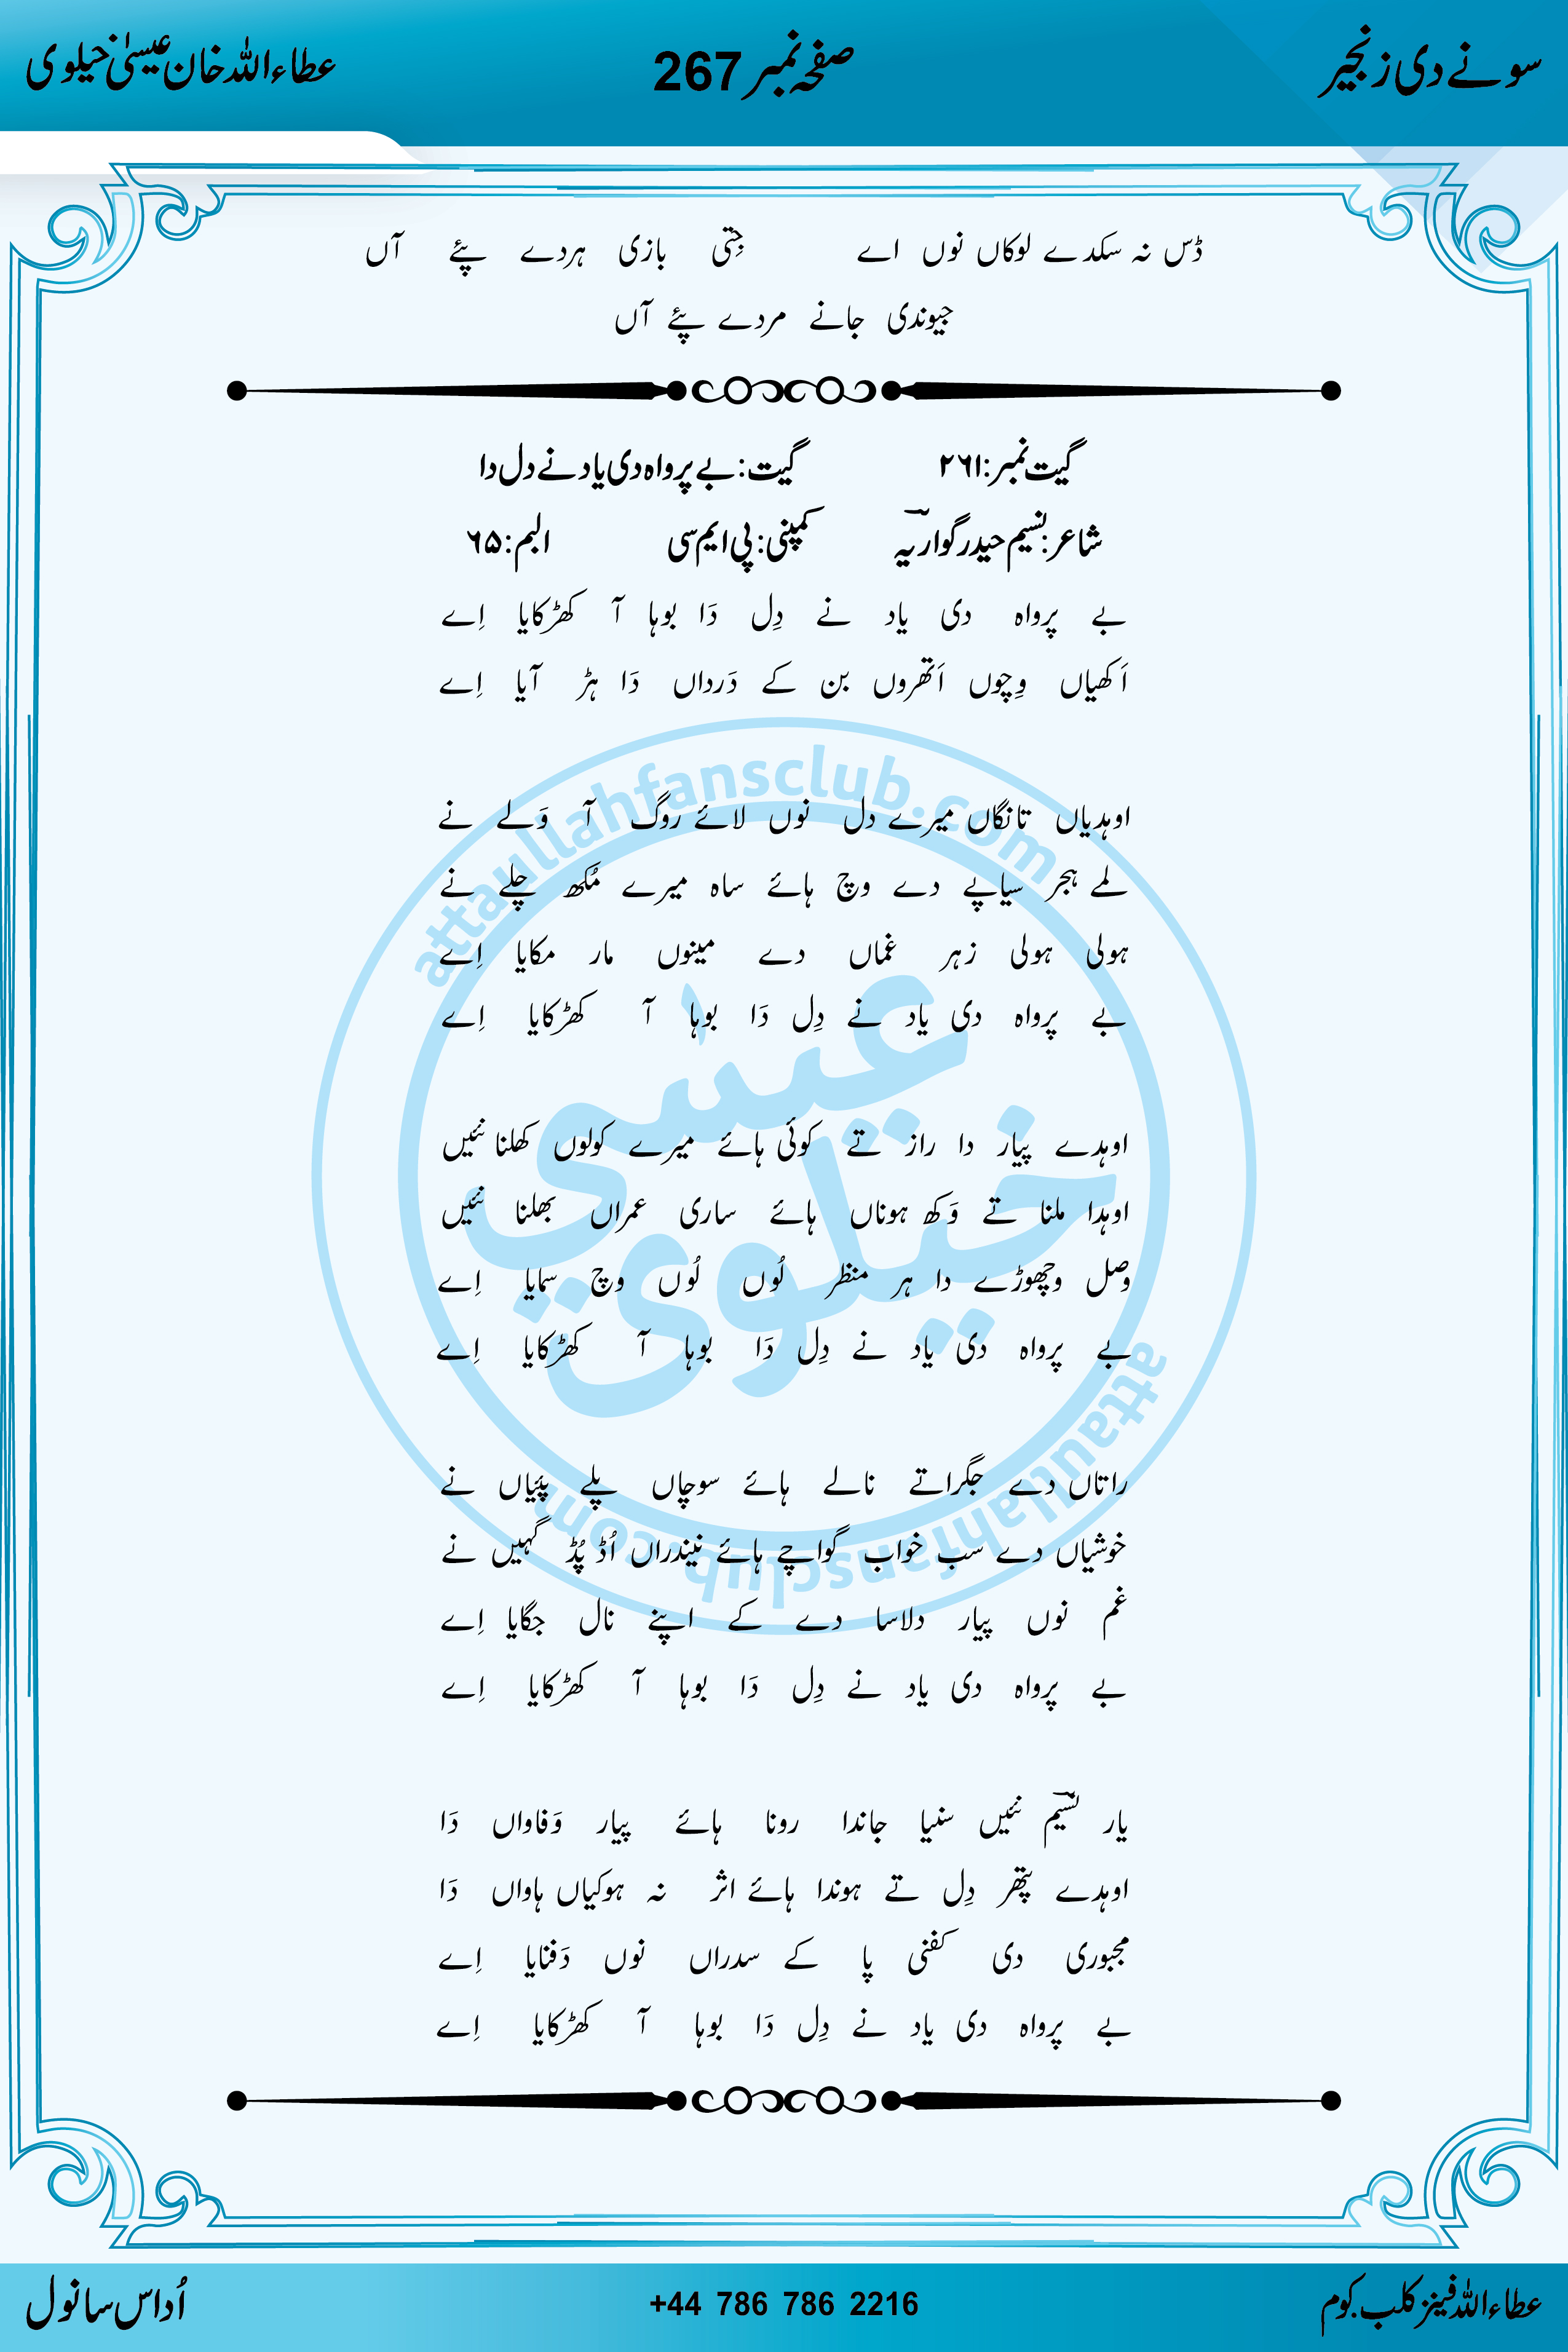 سونے دی زنجیر صفحہ نمبر 267 عطاءاللہ خان عیسیٰ خیلوی
ڈس نہ سکدے لوکاں نوں اے جِتی بازی ہردے پئے آں
جیوندی جانے مردے پئے آں
گیت نمبر: ۲۶۱ گیت: بے پرواہ دی یاد نے دل دا
شاعر: نسیم حیدر گواریہ کمپنی: پی ایم سی البم: ۶۵
بے پرواہ دی یاد نے دِل دَا بوہا آ کھڑکایا اِے
اَکھیاں وِچوں اَتھروں بن کے دَرداں دَا ہڑ آیا اِے
اوہدیاں تانگاں میرے دل نوں لائے روگ آ وَلے نے
لمے ہجر سیاپے دے وچ ہائے ساہ میرے مُکھ چلے نے
ہولی ہولی زہر غماں دے مینوں مار مکایا اِے
بے پرواہ دی یاد نے دِل دَا بوہا آ کھڑکایا اِے
اوہدے پیار دا راز تے کوئی ہائے میرے کولوں کھلنا نئیں
اوہدا ملنا تے وَکھ ہوناں ہائے ساری عمراں بھلنا نئیں
وصل وچھوڑے دا ہر منظر لُوں لُوں وچ سمایا اِے
بے پرواہ دی یاد نے دِل دَا بوہا آ کھڑکایا اِے
راتاں دے جگراتے نالے ہائے سوچاں پلے پئیاں نے
خوشیاں دے سب خواب گواچے ہائے نیندراں اُڈ پُڈ گہیں نے
غم نوں پیار دلاسا دے کے اپنے نال جگایا اِے
بے پرواہ دی یاد نے دِل دَا بوہا آ کھڑکایا اِے
یار نسیم نئیں سنیا جاندا رونا ہائے پیار وَفاواں دَا
اوہدے پتھر دِل تے ہوندا ہائے اثر نہ ہوکیاں ہاواں دَا
مجبوری دی کفنی پا کے سدراں نوں دَفنایا اِے
بے پرواہ دی یاد نے دِل دَا بوہا آ کھڑکایا اِے
attaullahfansclub.com
عیسٰی
خیلوی
attaullahfansclub.com
عطاءاللہ فینز کلب.کوم +44 786 786 2216 اُداس سانول